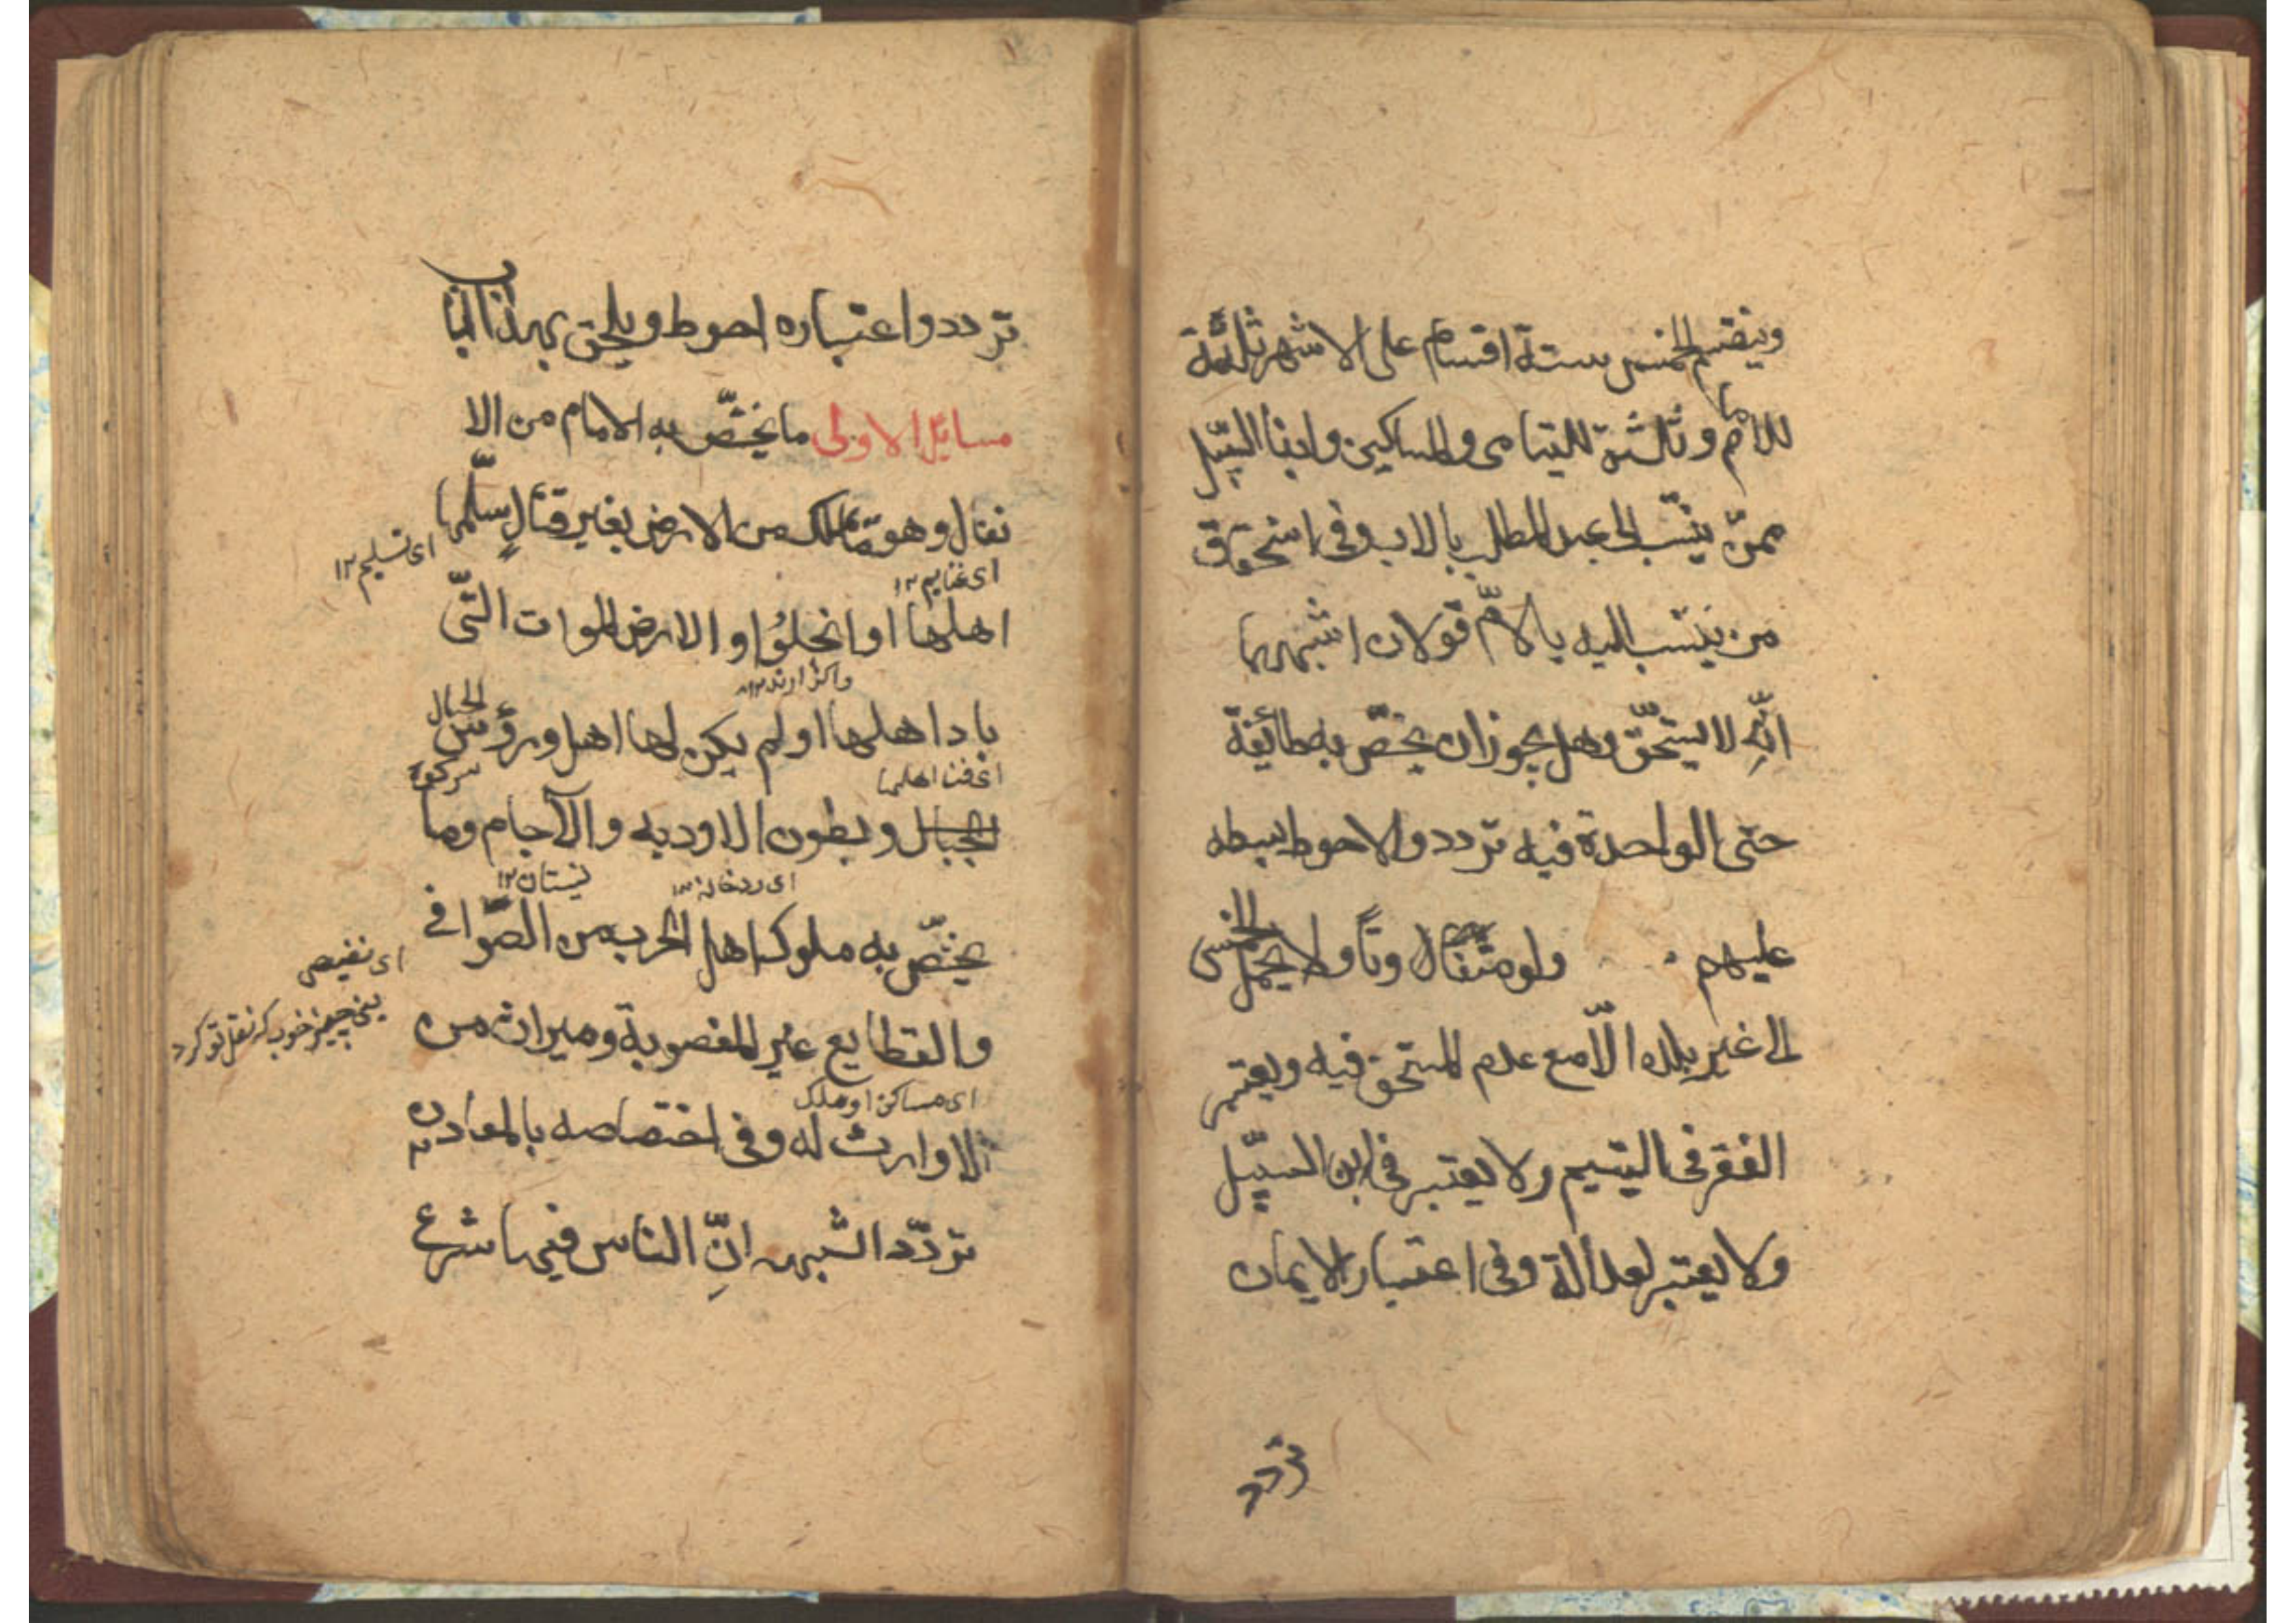 وينقسم الخمس ستة اقسام على الاشهر ثلثة
للامام وثلثة لليتامى والمساكين وابنا السّبيل
ممّن ينتسب الى عبد المطلب بالاب وفى استحقاق
من ينتسب اليه بالامّ قولان اشبههما
انّه لا يستحقّ وهل يجوز ان يخصّ به طائفة
حتى الواحدة فيه تردد والاحوط بسطه
عليهم ولو متفاوتا ولا يحمل الخمس
الى غير بلده الّا مع عدم المستحق فيه ويعتبر
الفقر فى اليتيم ولا يعتبر فى ابن السبيل
ولا يعتبر العدالة وفى اعتبار الايمان
تردد
تردد واعتباره احوط ويلحق بهذا الباب
مسائل الاولى ما يخصّ به الامام من الا
نفال وهو ما يملك من الارض بغير قتال سلّمها
اى تسليم ١٢
اى غنايم ١٢
اهلها او انجلوا والارض الموات الّتى
واكذارند ١٢
باد اهلها او لم يكن لها اهل ورؤس الجبال
اى فنا اهلها
سركوه
الجبال وبطون الاوديه والآجام وما
نيستان ١٢
اى ردخانه ١٢
يختصّ به ملوك اهل الحرب من الصّوافى
اى نفيس
يعنى چيز خوب كه نقل تو كرد
والقطايع غير المغصوبة وميراث من
اى مساكن او ملك
لا وارث له وفى اختصاصه بالمعادن
تردّد اشبهه انّ الناس فيها شرع